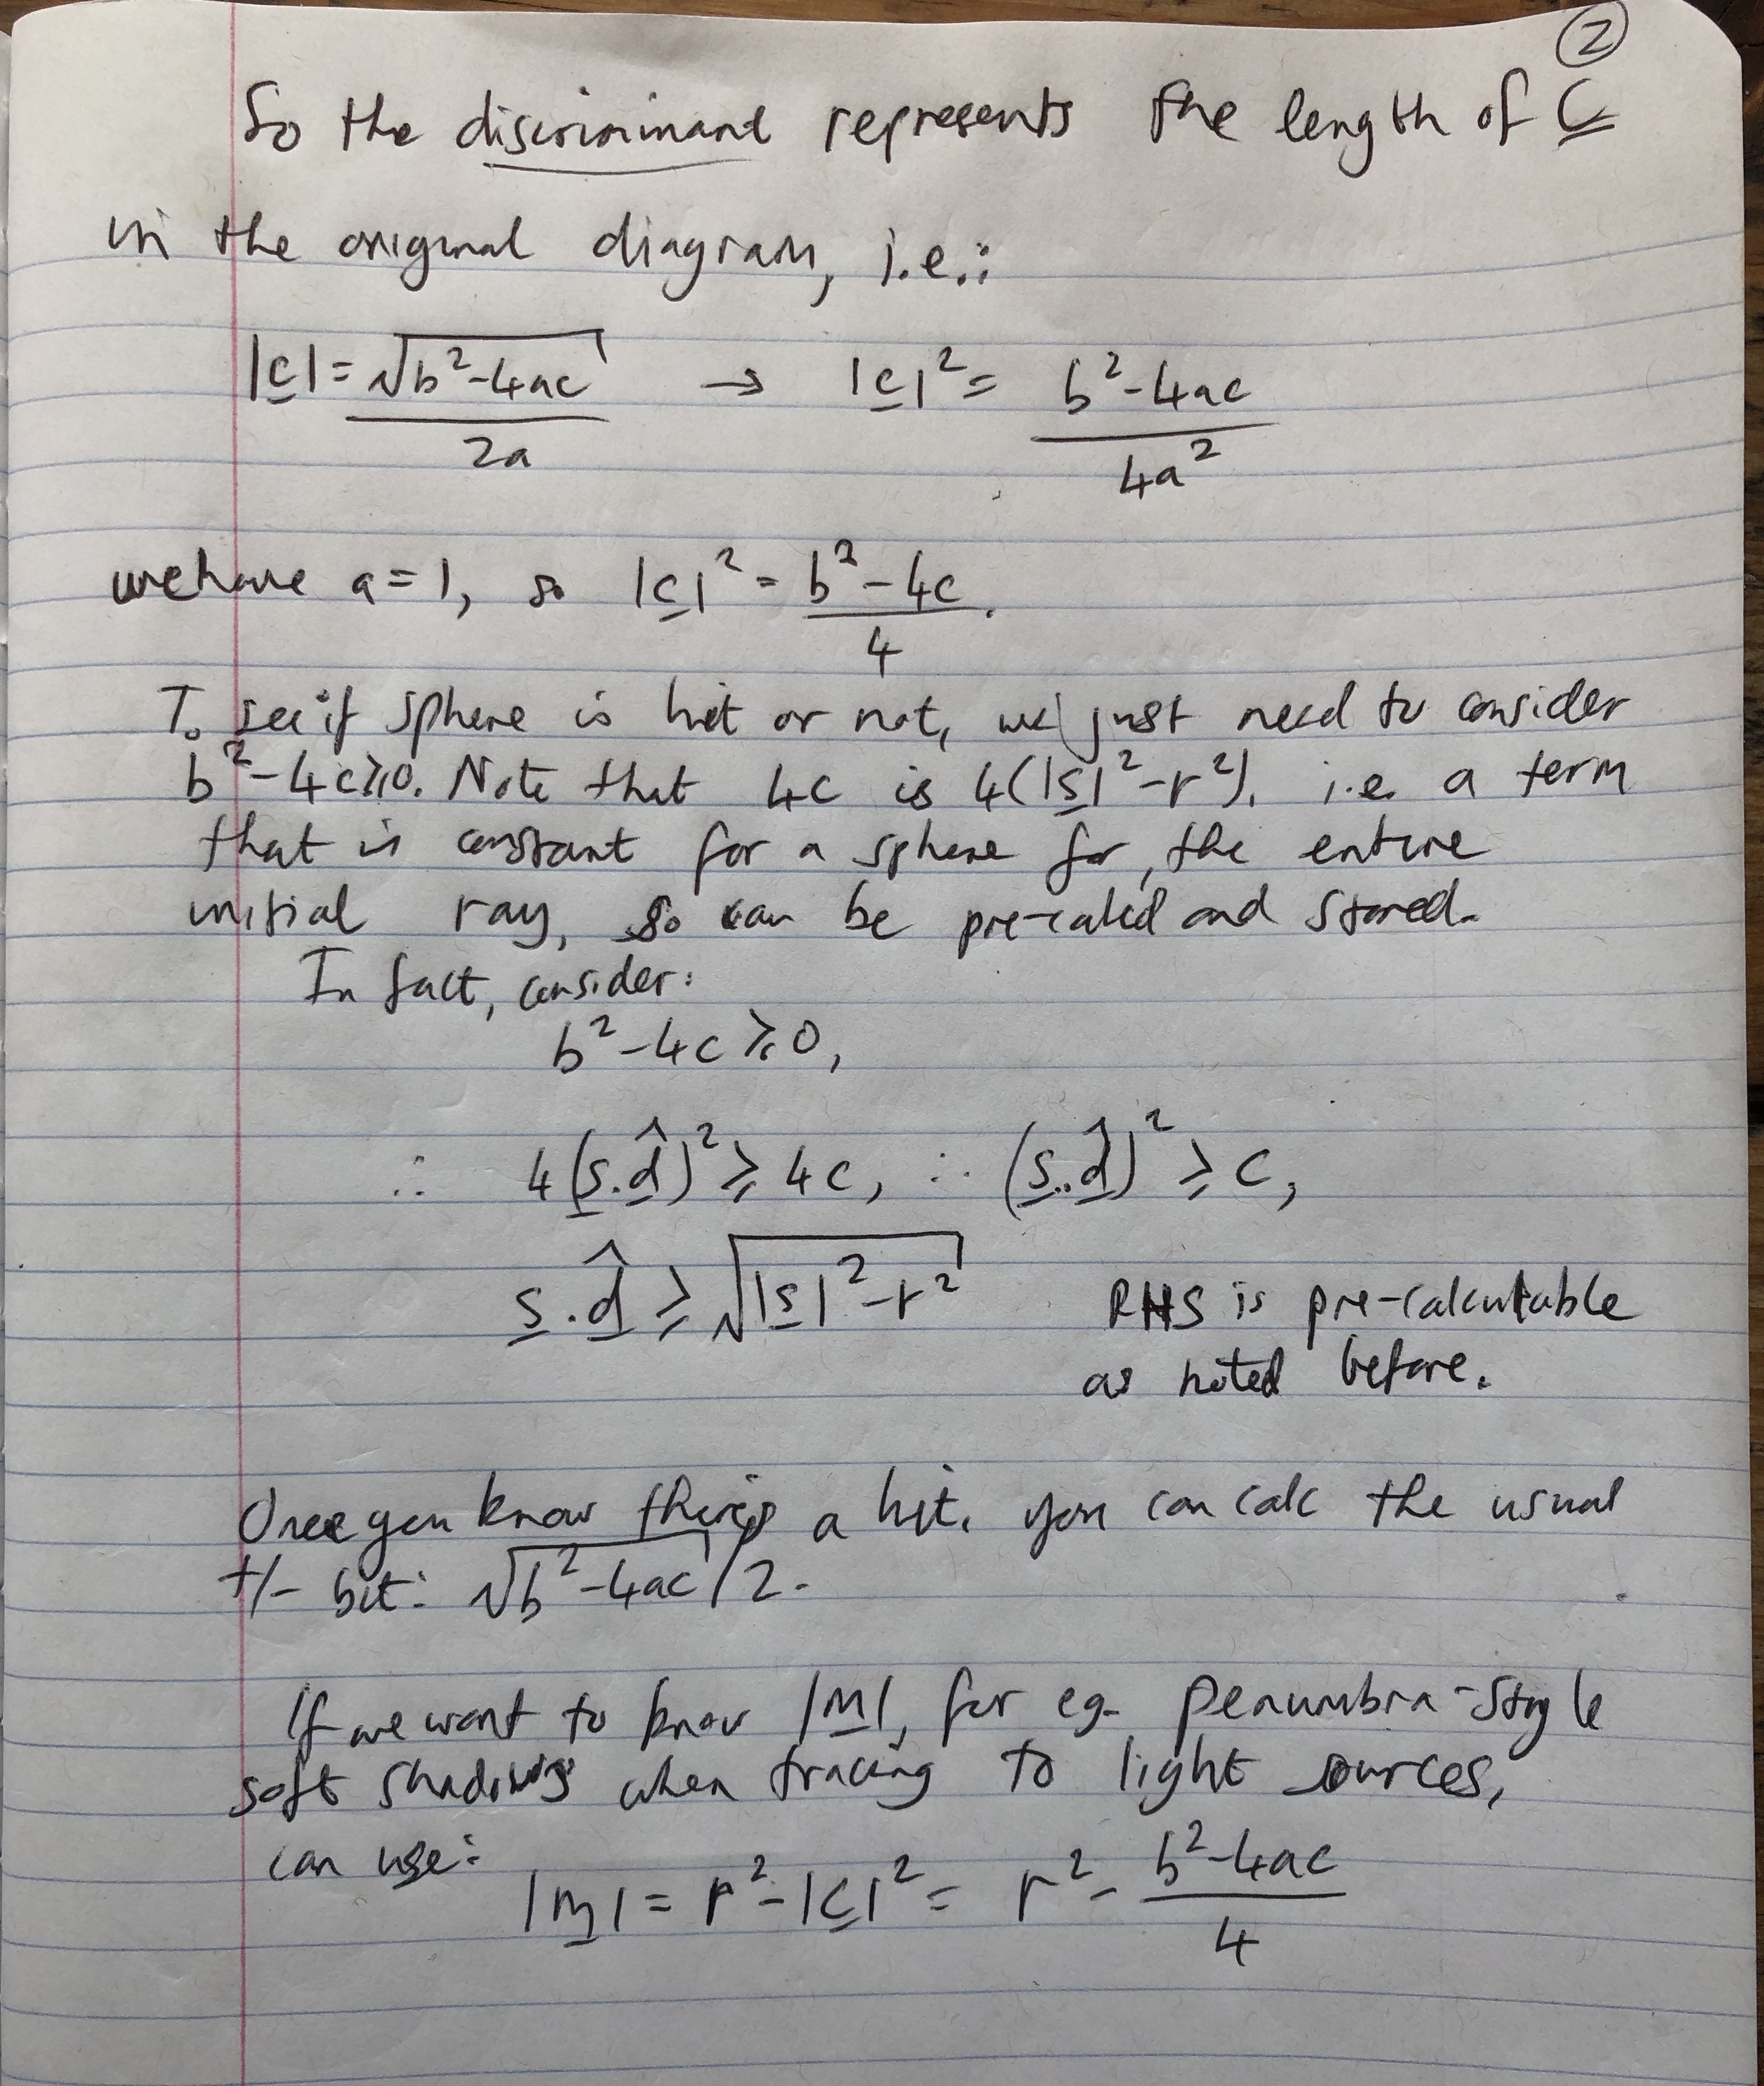 ②
So the discriminant represents the length of c
in the original diagram, i.e.:
|c| = √(b²-4ac) / 2a → |c|² = (b²-4ac) / 4a²
we have a=1, so |c|² = (b²-4c) / 4.
To see if sphere is hit or not, we just need to consider
b²-4c≥0. Note that 4c is 4(|s|²-r²), i.e. a term
that is constant for a sphere for, the entire
initial ray, so can be pre-calced and stored.
In fact, consider:
b²-4c≥0,
∴ 4(s.d̂)² ≥ 4c, ∴ (s.d̂)² ≥ c,
s.d̂ ≥ √(|s|²-r²) RHS is pre-calculatable
as noted before.
Once you know there's a hit, you can calc the usual
+/- bit: √(b²-4ac)/2.
If we want to know |m|, for eg. penumbra-style
soft shadows when tracing to light sources,
can use:
|m| = r²-|c|² = r² - (b²-4ac) / 4